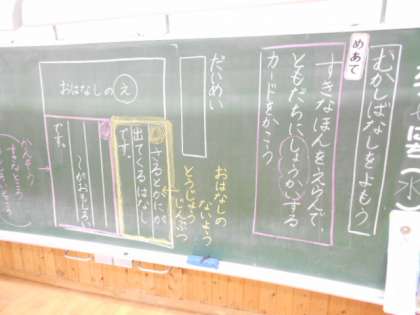 むかしばなしをよもう
めあて
すきなほんをえらんで、
ともだちにしょうかいする
カードをかこう
だいめい
おはなしの え
おはなしの
ないよう
とうじょう
じんぶつ
さるとかにが
出てくるはなし
です。
～がおもしろい
です。
かんそう
すきなところ